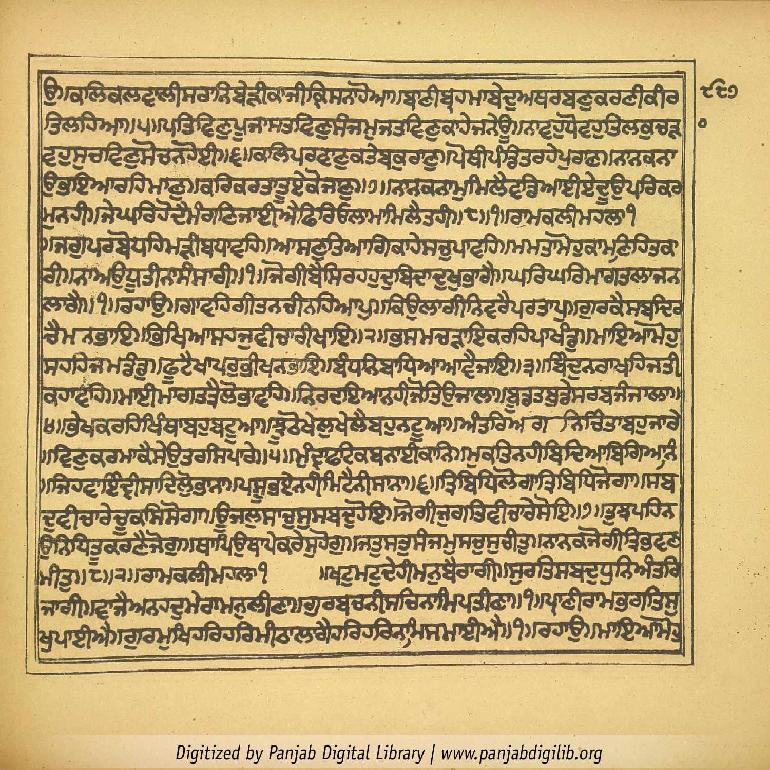 ਉ॥ਕਲਿਕਲਵਾਲੀਸਰਾਨਿਬੇੜੀਕਾਜੀਕ੍ਰਿਸਨਾਹੋਆ॥ਬਾਣੀਬ੍ਰਹਮਾਬੇਦੁਅਥਰਬਣੁਕਰਣੀਕੀਰ
ਤਿਲਹਿਆ॥੫॥ਪਤਿਵਿਣੁਪੂਜਾਸਤਵਿਣੁਸੰਜਮੁਜਤਵਿਣੁਕਾਹੇਜਨੇਊ॥ਨਾਵਹੁਧੋਵਹੁਤਿਲਕੁਚੜਾ
ਵਹੁਸੁਚਵਿਣੁਸੋਚਨਹੋਈ॥੬॥ਕਲਿਪਰਵਾਣੁਕਤੇਬਕੁਰਾਣੁ॥ਪੋਥੀਪੰਡਿਤਰਹੇਪੁਰਾਣ॥ਨਾਨਕਨਾ
ਉਭਇਆਰਹਿਮਾਣੁ॥ਕਰਿਕਰਤਾਤੂਏਕੋਜਾਣੁ॥੭॥ਨਾਨਕਨਾਮੁਮਿਲੈਵਡਿਆਈਏਦੂਉਪਰਿਕਰ
ਮੁਨਹੀ॥ਜੇਘਰਿਹੋਦੈਮੰਗਣਿਜਾਈਐਫਿਰਿਓਲਾਮਾਮਿਲੈਤਹੀ॥੮॥੧॥ਰਾਮਕਲੀਮਹਲਾ੧
॥ਜਗੁਪਰਬੋਧਹਿਮੜੀਬਧਾਵਹਿ॥ਆਸਣੁਤਿਆਗਿਕਾਹੇਸਚੁਪਾਵਹਿ॥ਮਮਤਾਮੋਹੁਕਾਮਣਿਹਿਤਕਾ
ਰੀ॥ਨਾਅਉਧੂਤੀਨਾਸੰਸਾਰੀ॥੧॥ਜੋਗੀਬੈਸਿਰਹਹੁਦੁਬਿਧਾਦੁਖੁਭਾਗੈ॥ਘਰਿਘਰਿਮਾਗਤਲਾਜਨ
ਲਾਗੈ॥੧॥ਰਹਾਉ॥ਗਾਵਹਿਗੀਤਨਚੀਨਹਿਆਪੁ॥ਕਿਉਲਾਗੀਨਿਵਰੈਪਰਤਾਪੁ॥ਗੁਰਕੈਸਬਦਿਰ
ਚੈਮਨਭਾਇ॥ਭਿਖਿਆਸਹਜੁਵੀਚਾਰੀਖਾਇ॥੨॥ਭਸਮਚੜਾਇਕਰਹਿਪਾਖੰਡੁ॥ਮਾਇਆਮੋਹੁ
ਸਹਹਿਜਮਡੰਡੁ॥ਫੂਟੈਖਾਪਰੁਭੀਖਨਭਾਇ॥ਬੰਧਨਿਬਾਧਿਆਆਵੈਜਾਇ॥੩॥ਬਿੰਦੁਨਰਾਖਹਿਜਤੀ
ਕਹਾਵਹਿ॥ਮਾਈਮਾਗਤਤ੍ਰੈਲੋਭਾਵਹਿ॥ਨਿਰਦਇਆਨਹੀਜੋਤਿਉਜਾਲਾ॥ਬੂਡਤਬੂਡੇਸਰਬਜੰਜਾਲਾ॥
੪॥ਭੇਖਕਰਹਿਖਿੰਥਾਬਹੁਥਟੂਆ॥ਝੂਠੋਖੇਲੁਖੇਲੈਬਹੁਨਟੂਆ॥ਅੰਤਰਿਅਗਨਿਚਿੰਤਾਬਹੁਜਾਰੇ
॥ਵਿਣੁਕਰਮਾਕੈਸੇਉਤਰਸਿਪਾਰੇ॥੫॥ਮੁੰਦ੍ਰਾਫਟਕਬਨਾਈਕਾਨਿ॥ਮੁਕਤਿਨਹੀਬਿਦਿਆਬਿਗਿਆਨਿ
॥ਜਿਹਵਾਇੰਦ੍ਰੀਸਾਦਿਲੋੁਭਾਨਾ॥ਪਸੂਭਏਨਹੀਮਿਟੈਨੀਸਾਨਾ॥੬॥ਤ੍ਰਿਬਿਧਿਲੋਗਾਤ੍ਰਿਬਿਧਿਜੋਗਾ॥ਸਬ
ਦੁਵੀਚਾਰੈਚੂਕਸਿਸੋਗਾ॥ਊਜਲੁਸਾਚੁਸੁਸਬਦੁਹੋਇ॥ਜੋਗੀਜੁਗਤਿਵੀਚਾਰੇਸੋਇ॥੭॥ਤੁਝਪਹਿਨ
ਉਨਿਧਿਤੂਕਰਣੈਜੋਗੁ॥ਥਾਪਿਉਥਾਪੇਕਰੇਸੁਹੋਗੁ॥ਜਤੁਸਤੁਸੰਜਮੁਸਚੁਸੁਚੀਤੁ॥ਨਾਨਕਜੋਗੀਤ੍ਰਿਭਵਣ
ਮੀਤੁ॥੮॥੨॥ਰਾਮਕਲੀਮਹਲਾ੧ ॥ਖਟੁਮਟੁਦੇਹੀਮਨੁਬੈਰਾਗੀ॥ਸੁਰਤਿਸਬਦੁਧੁਨਿਅੰਤਰਿ
ਜਾਗੀ॥ਵਾਜੈਅਨਹਦੁਮੇਰਾਮਨੁਲੀਣਾ॥ਗੁਰਬਚਨੀਸਚਿਨਾਮਿਪਤੀਣਾ॥੧॥ਪ੍ਰਾਣੀਰਾਮਭਗਤਿਸੁ
ਖੁਪਾਈਐ॥ਗੁਰਮੁਖਿਹਰਿਹਰਿਮੀਠਾਲਾਗੈਹਰਿਹਰਿਨਾਮਿਸਮਾਈਐ॥੧॥ਰਹਾਉ॥ਮਾਇਆਮੋਹੁ
Digitized by Panjab Digital Library | www.panjabdigilib.org